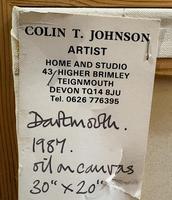 COLIN T. JOHNSON
ARTIST
HOME AND STUDIO
43, HIGHER BRIMLEY
TEIGNMOUTH
DEVON TQ14 8JU
Tel. 0626 776395
Dartmouth.
1987.
oil on canvas
30" x 20"